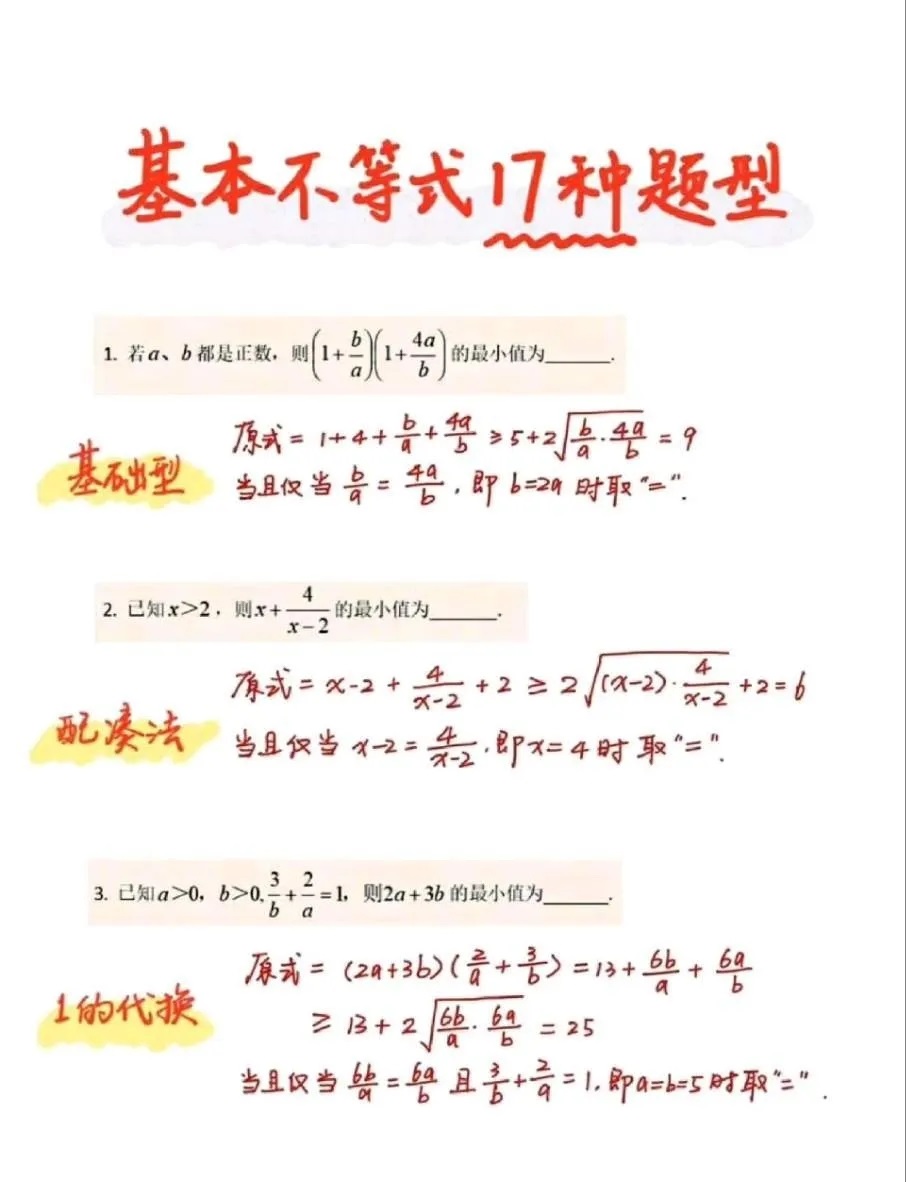 基本不等式17种题型
1. 若a、b都是正数，则(1+b/a)(1+4a/b)的最小值为______.
基础型
原式 = 1+4+b/a+4a/b ≥ 5+2√(b/a·4a/b) = 9
当且仅当 b/a = 4a/b, 即 b=2a 时取"=".
2. 已知x>2，则x+4/(x-2)的最小值为______.
配凑法
原式 = x-2 + 4/(x-2) + 2 ≥ 2√((x-2)·4/(x-2)) +2 = 6
当且仅当 x-2 = 4/(x-2), 即x=4时取"=".
3. 已知a>0，b>0, 3/b+2/a=1，则2a+3b的最小值为______.
1的代换
原式 = (2a+3b)(2/a+3/b) = 13+6b/a+6a/b
≥ 13+2√(6b/a·6a/b) = 25
当且仅当 6b/a=6a/b 且 3/b+2/a=1, 即a=b=5时取"=".